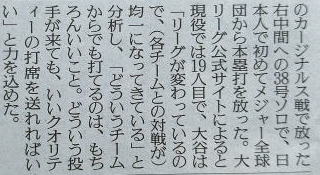 のカージナルス戦で放った
右中間への38号ソロで、日
本人で初めてメジャー全球
団から本塁打を放った。大
リーグ公式サイトによると
現役では19人目で、大谷は
「リーグが変わっているの
で、（各チームとの対戦が）
均一になってきている」と
分析し、「どういうチーム
からでも打てるのは、もち
ろんいいこと。どういう投
手が来ても、いいクオリテ
ィーの打席を送れればい
い」と力を込めた。